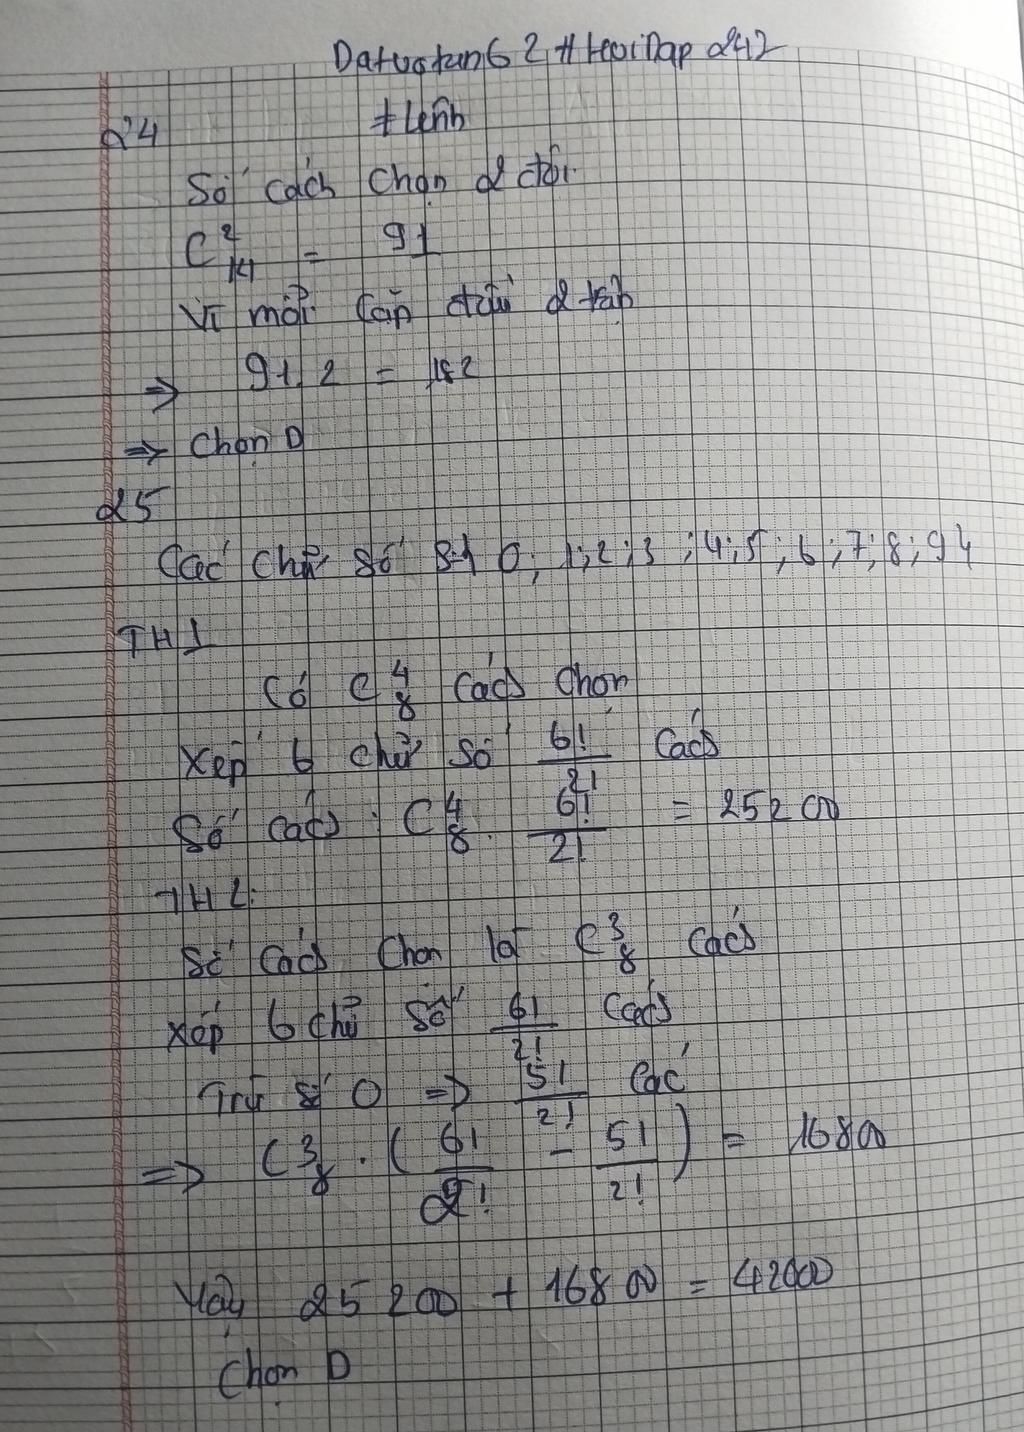 Datustun62 #HoiDap 242
#Lệnh
24
Số cách chọn 2 đội
C²₁₄ = 91
Vì mỗi cặp đấu 2 trận
⇒ 91.2 = 182
⇒ Chọn D
25
Các chữ số 0; 1; 2; 3; 4; 5; 6; 7; 8; 9
TH1
Có C⁴₈ cách chọn
Xếp 6 chữ số 6!/2! cách
Số cách: C⁴₈ . 6!/2! = 25200
TH2:
Số cách chọn là C³₈ cách
Xếp 6 chữ số 6!/2! cách
Trừ số 0 ⇒ 5!/2! các
⇒ C³₈ . (6!/2! - 5!/2!) = 16800
Vậy 25200 + 16800 = 42000
Chọn D